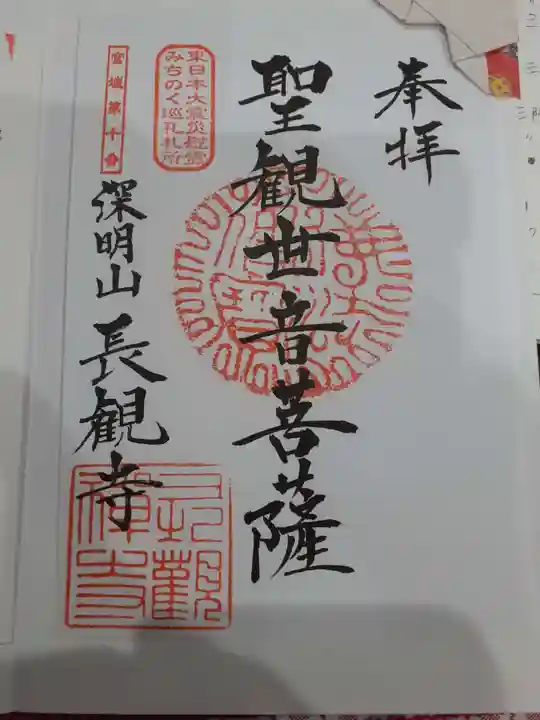 奉拝
聖観世音菩薩
東日本大震災慰霊
みちのく巡礼札所
宮城第十番
深明山 長観寺
長觀
禅寺